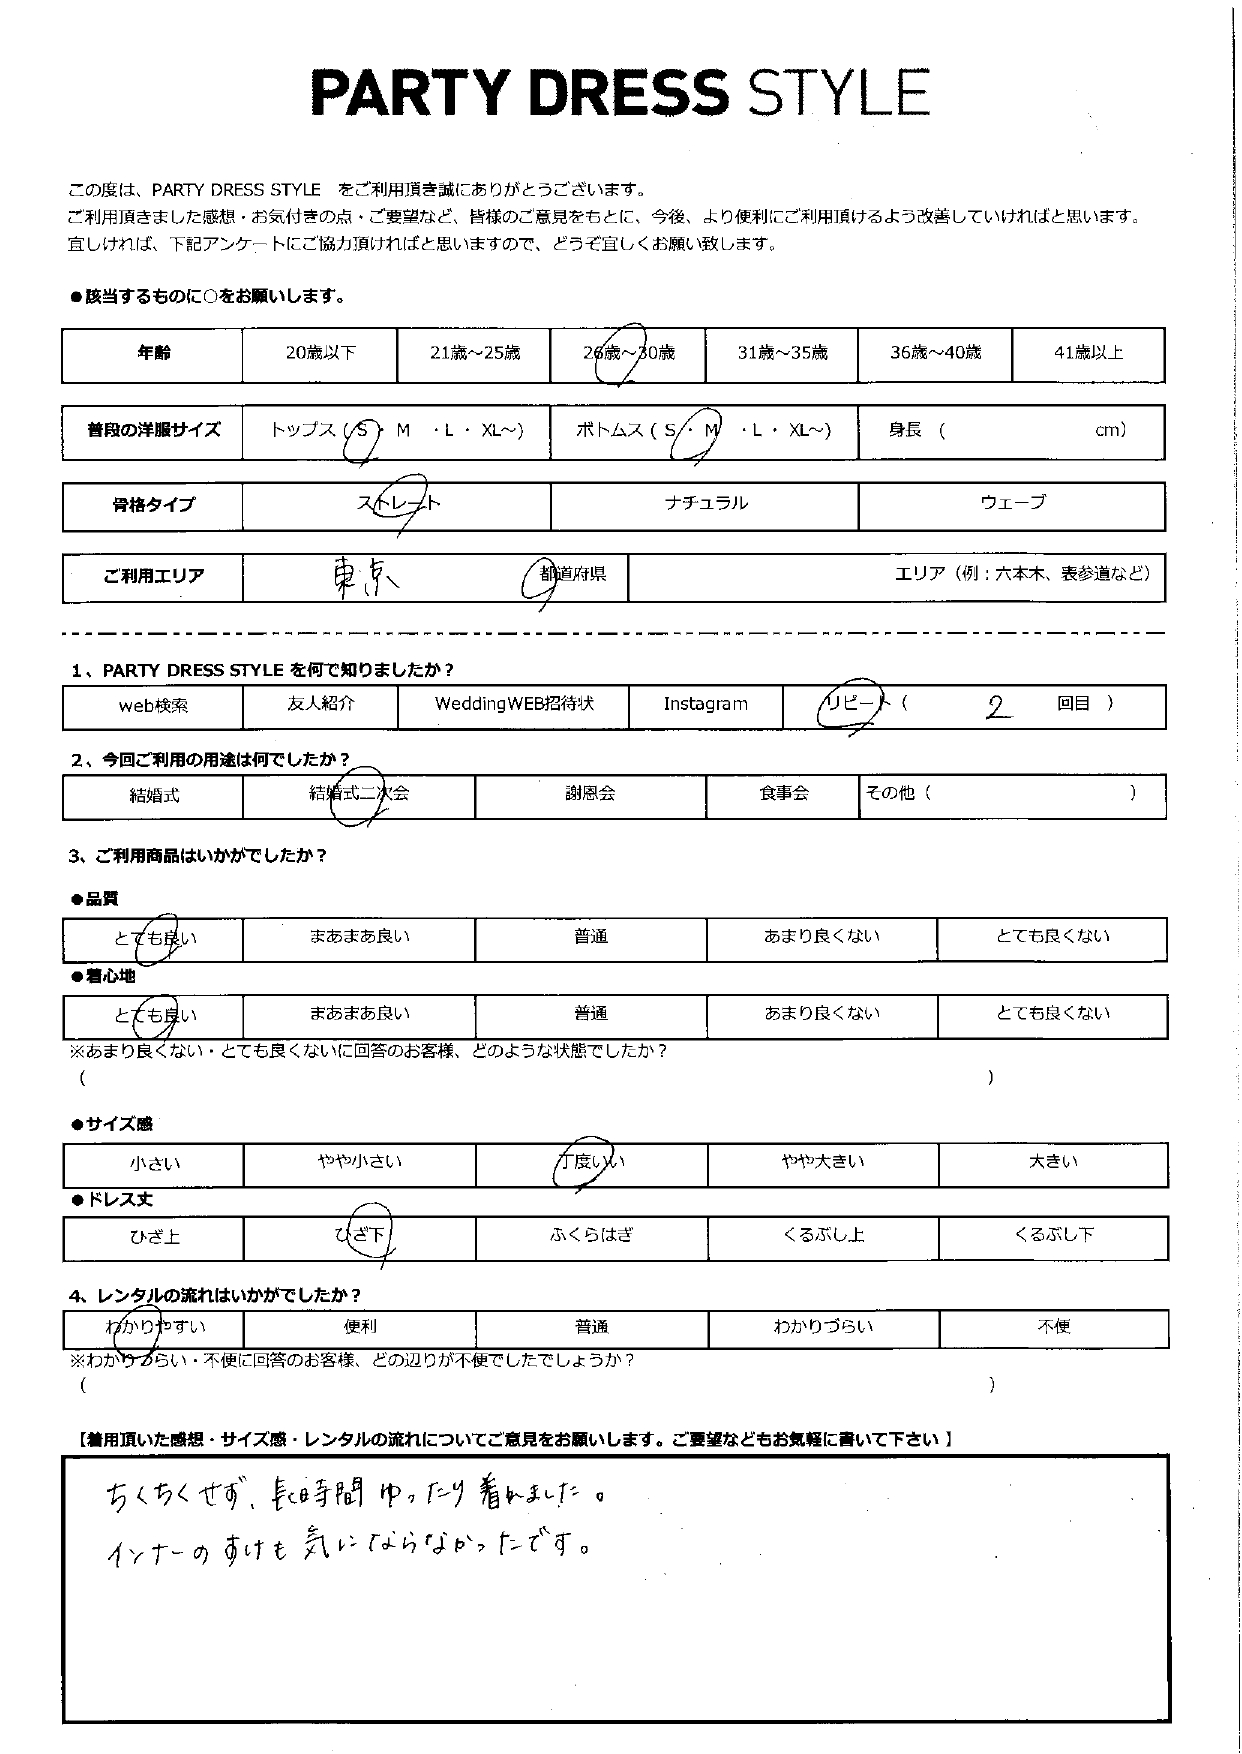 PARTY DRESS STYLE
この度は、PARTY DRESS STYLE　をご利用頂き誠にありがとうございます。
ご利用頂きました感想・お気付きの点・ご要望など、皆様のご意見をもとに、今後、より便利にご利用頂けるよう改善していければと思います。
宜しければ、下記アンケートにご協力頂ければと思いますので、どうぞ宜しくお願い致します。
●該当するものに○をお願いします。
年齢 20歳以下 21歳～25歳 26歳～30歳 31歳～35歳 36歳～40歳 41歳以上
普段の洋服サイズ トップス ( S・ M ・L ・ XL～) ボトムス ( S ・ M ・L ・ XL～) 身長 ( cm)
骨格タイプ ストレート ナチュラル ウェーブ
ご利用エリア 東京 都道府県 エリア（例：六本木、表参道など）
1、PARTY DRESS STYLE を何で知りましたか？
web検索 友人紹介 WeddingWEB招待状 Instagram リピート（ 2 回目 ）
2、今回ご利用の用途は何でしたか？
結婚式 結婚式二次会 謝恩会 食事会 その他（ ）
3、ご利用商品はいかがでしたか？
●品質
とても良い まあまあ良い 普通 あまり良くない とても良くない
●着心地
とても良い まあまあ良い 普通 あまり良くない とても良くない
※あまり良くない・とても良くないに回答のお客様、どのような状態でしたか？
( )
●サイズ感
小さい やや小さい 丁度いい やや大きい 大きい
●ドレス丈
ひざ上 ひざ下 ふくらはぎ くるぶし上 くるぶし下
4、レンタルの流れはいかがでしたか？
わかりやすい 便利 普通 わかりづらい 不便
※わかりづらい・不便に回答のお客様、どの辺りが不便でしたでしょうか？
( )
【着用頂いた感想・サイズ感・レンタルの流れについてご意見をお願いします。ご要望などもお気軽に書いて下さい】
ちくちくせず、長時間ゆったり着れました。
インナーのすけも気にならなかったです。